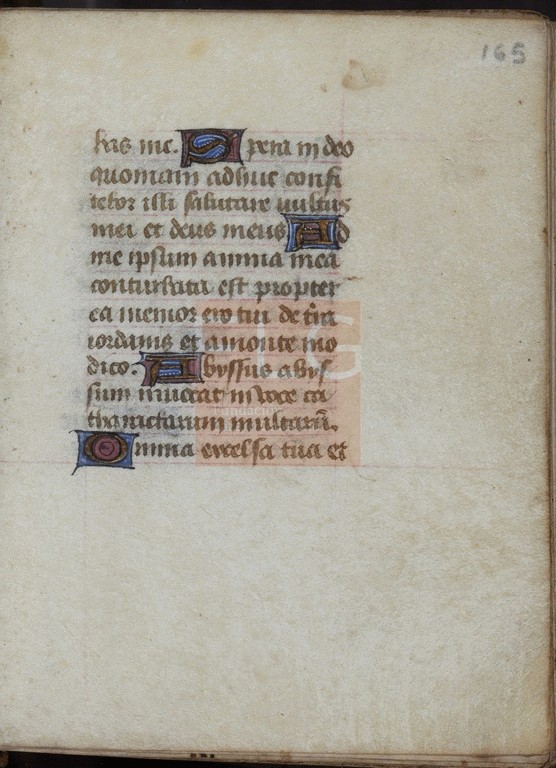 165
bas me. Spera in deo
quoniam adhuc confi
tebor illi salutare uultus
mei et deus meus Ad
me ipsum anima mea
conturbata est propter
ea memor ero tui de tr̃a
iordanis et amonte mo
dico. Abyssus abys
sum inuocat in uoce ca
tharactarum multarũ.
Omnia excelsa tua et
LG
fundación